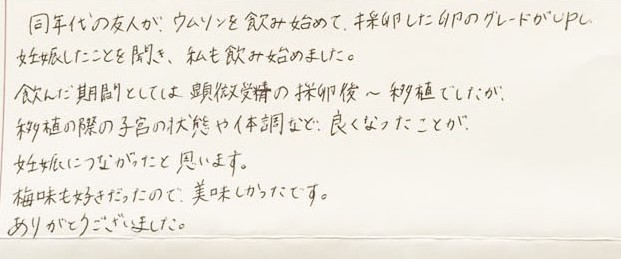 同年代の友人が、ウムリンを飲み始めて、採卵した卵のグレードがUPし、
妊娠したことを聞き、私も飲み始めました。
飲んだ期間としては 顕微受精の採卵後〜移植でしたが、
移植の際の子宮の状態や体調など、良くなったことが、
妊娠につながったと思います。
梅味も好きだったので、美味しかったです。
ありがとうございました。